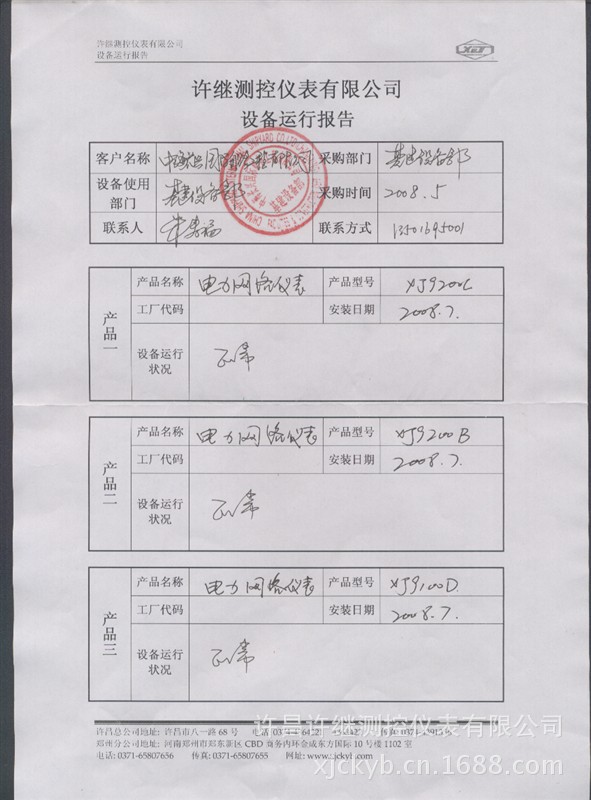 许继测控仪表有限公司
设备运行报告
XJ
许继测控仪表有限公司
设备运行报告
客户名称 采购部门 基建设备部
设备使用部门 基建设备部 采购时间 2008.5
联系人 联系方式 13501695001
产品一
产品名称 电力网络仪表 产品型号 XJ9200C
工厂代码 安装日期 2008.7.
设备运行状况 正常
产品二
产品名称 电力网络仪表 产品型号 XJ9200B
工厂代码 安装日期 2008.7.
设备运行状况 正常
产品三
产品名称 电力网络仪表 产品型号 XJ9100D
工厂代码 安装日期 2008.7.
设备运行状况 正常
许昌总公司地址: 许昌市八一路 68 号 电话
郑州分公司地址: 河南郑州市郑东新区 CBD 商务内环金成东方国际 10 号楼 1102 室
电话: 0371-65807656 传真: 0371-65807655 网址: www.jckyb.com
许昌许继测控仪表有限公司
xjckyb.cn.1688.com